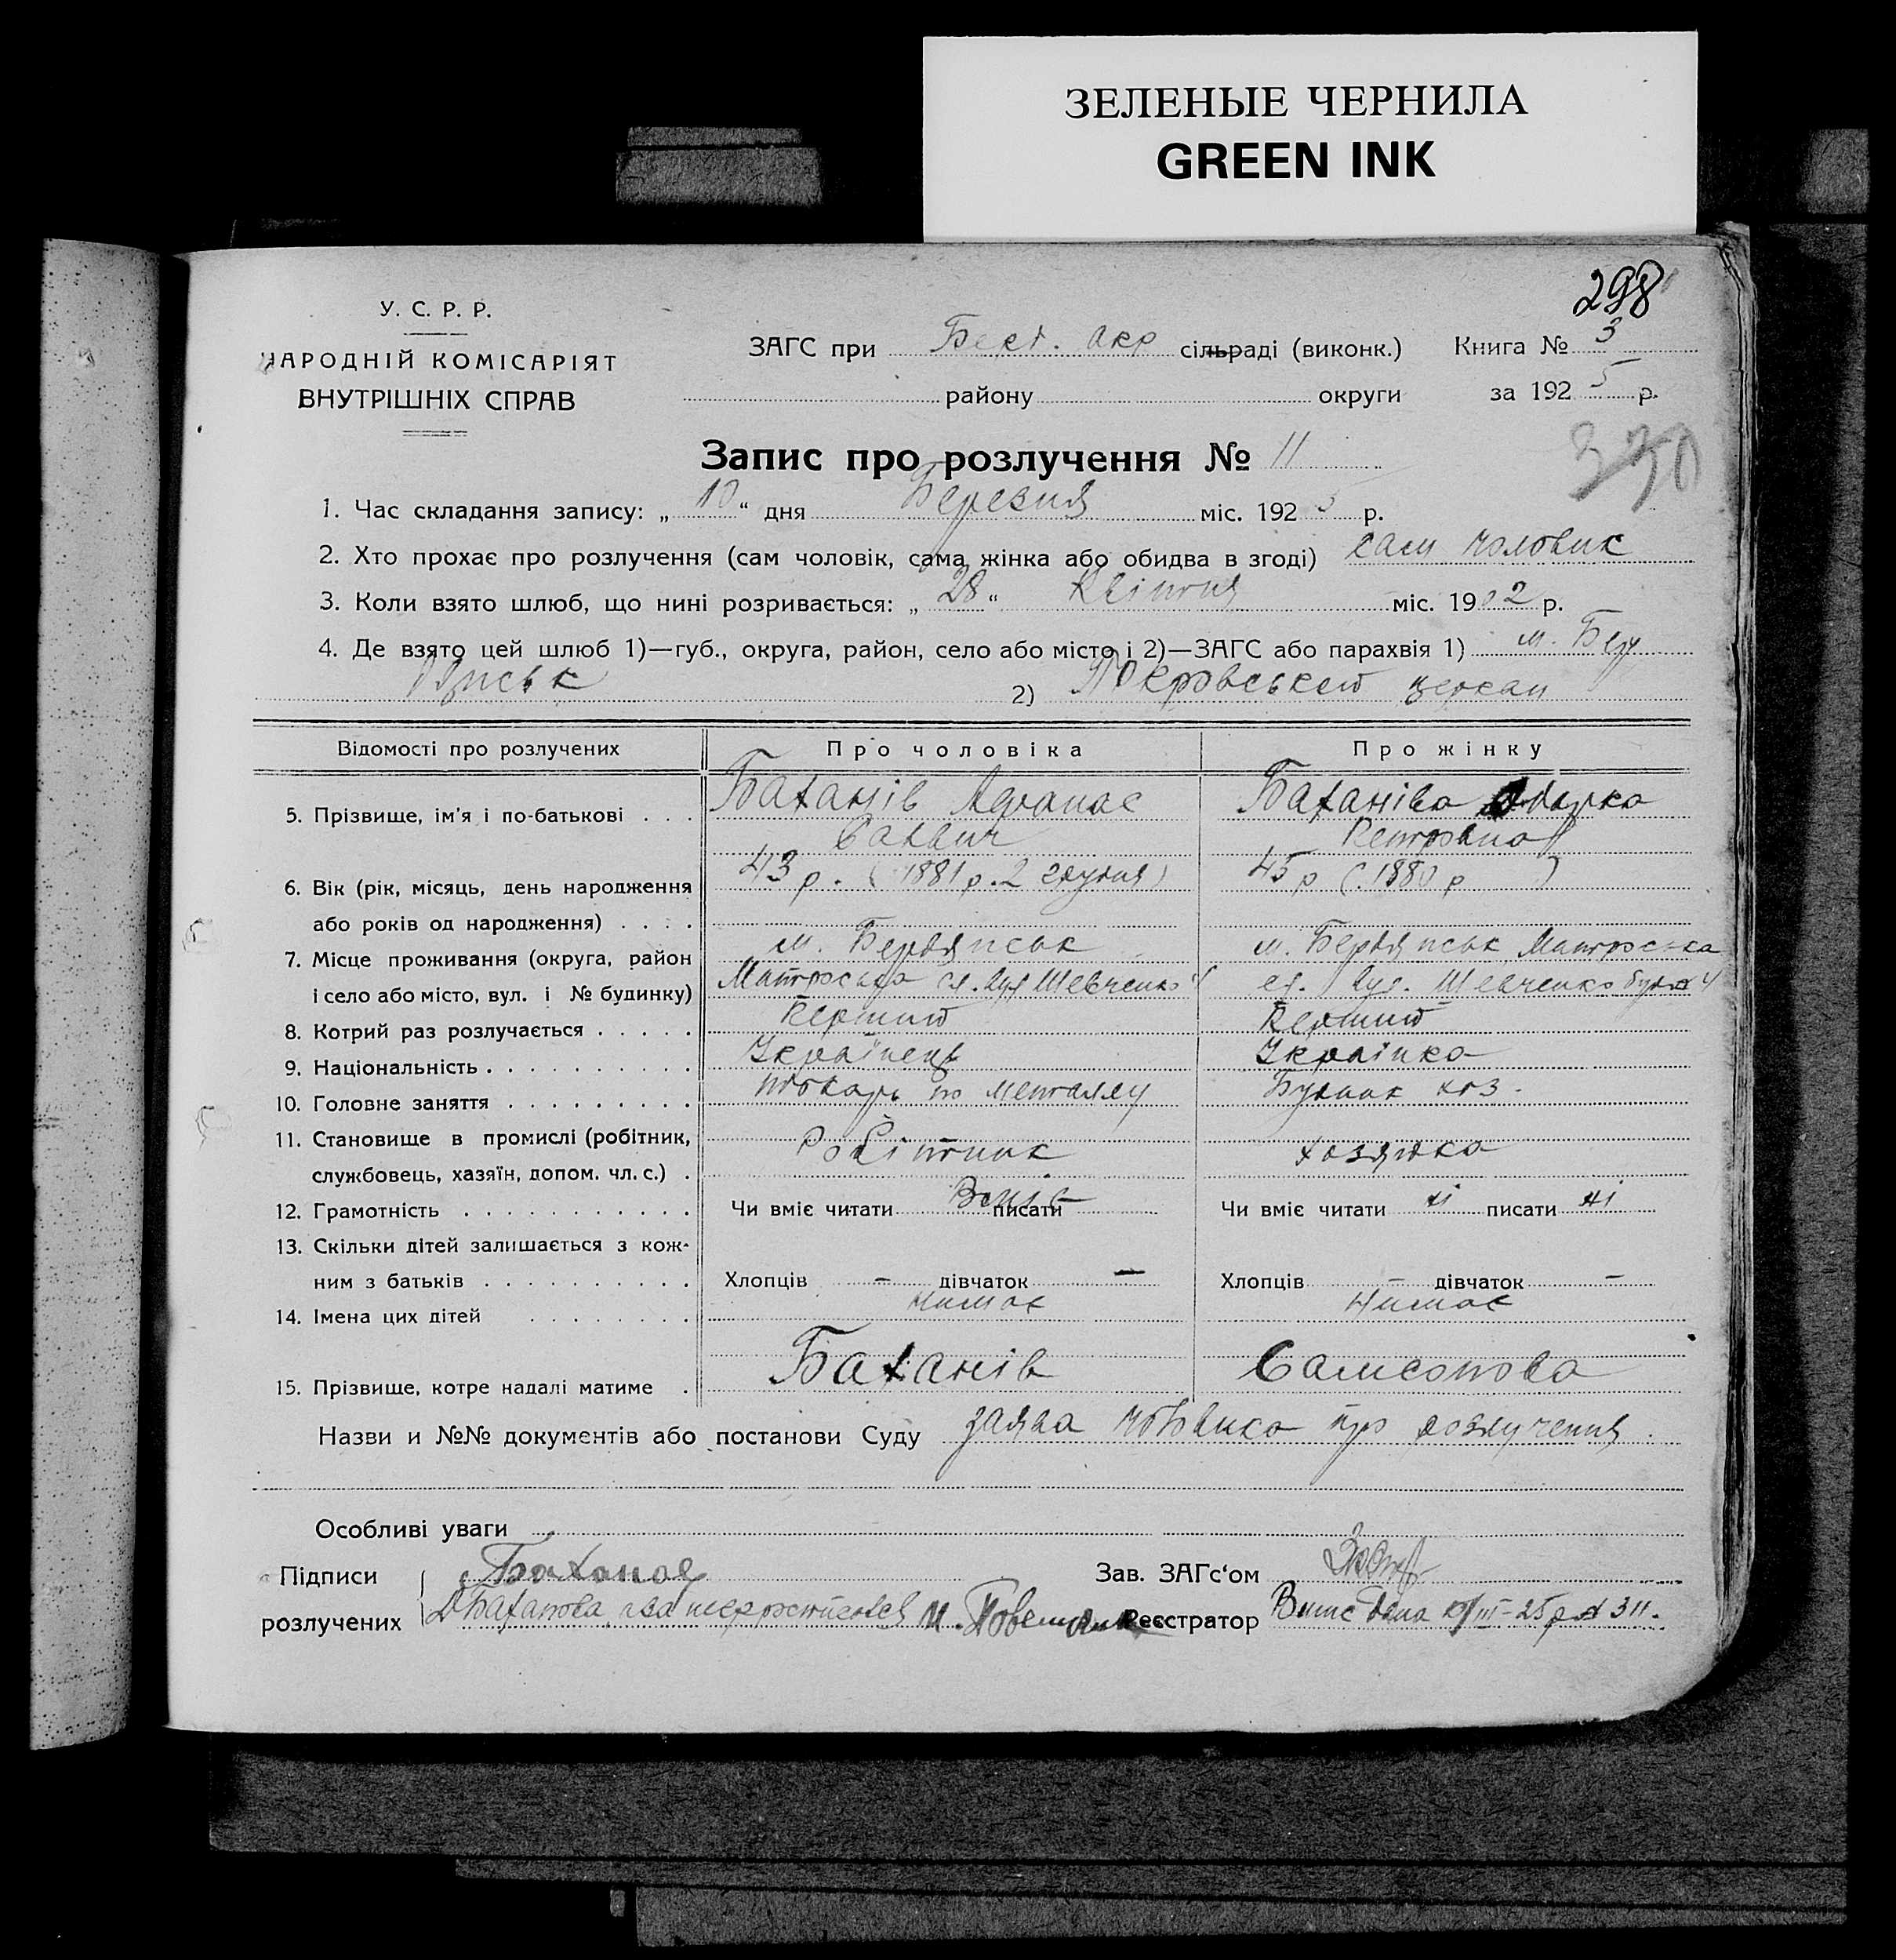 ЗЕЛЕНЫЕ ЧЕРНИЛА
GREEN INK
298
У. С. Р. Р.
НАРОДНІЙ КОМІСАРІЯТ
ВНУТРІШНІХ СПРАВ
ЗАГС при Берд. окр сільраді (виконк.) Книга № 3
району округи за 1925 р.
330
Запис про розлучення № 11
1. Час складання запису: „ 10 “ дня Березня міс. 1925 р.
2. Хто прохає про розлучення (сам чоловік, сама жінка або обидва в згоді) сам чоловик
3. Коли взято шлюб, що нині розривається: „ 28 “ Квітня міс. 1902 р.
4. Де взято цей шлюб 1)—губ., округа, район, село або місто і 2)—ЗАГС або парахвія 1) м. Бер
дянськ 2) Покровській церкви
Відомості про розлучених Про чоловіка Про жінку
5. Прізвище, ім'я і по-батькові . . . Баханів Афанас Баханіва Одарка
Саввич Петровна
6. Вік (рік, місяць, день народження 43 р. (1881 р. 2 грудня) 45 р (1880 р )
або років од народження) . . . .
7. Місце проживання (округа, район м. Бердянськ м. Бердянськ Матроська
і село або місто, вул. і № будинку) Матроська сл. вул Шевченко 4 сл. вул. Шевченко буд. 4
8. Котрий раз розлучається . . . . . Перший Перший
9. Національність . . . . . . . . . . Українець Українка
10. Головне заняття . . . . . . . . . токарь по металлу Будинк хоз.
11. Становище в промислі (робітник,
службовець, хазяїн, допом. чл. с.) . Робітник хозяйка
12. Грамотність . . . . . . . . . . . Чи вміє читати Вміє писати Чи вміє читати ні писати ні
13. Скільки дітей залишається з кож-
ним з батьків . . . . . . . . . . Хлопців — дівчаток — Хлопців — дівчаток —
14. Імена цих дітей . . . . . . . . немає немає
15. Прізвище, котре надалі матиме . Баханів Самсонова
Назви и №№ документів або постанови Суду заява чоловика про розлучення
Особливі уваги
Підписи Зав. ЗАГс‘ом
розлучених Д Баханова Реєстратор Випс дана 10/III-25 р № 311.